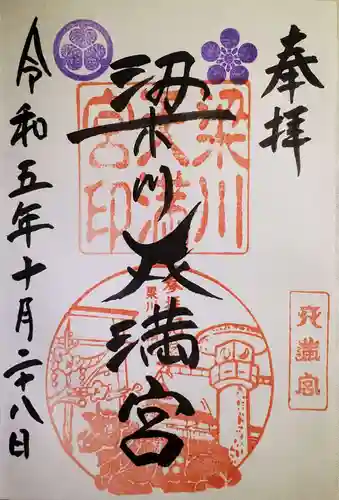 奉拝
梁川天満宮
令和五年十月二十八日
梁川
天満
宮印
梁川
天満宮